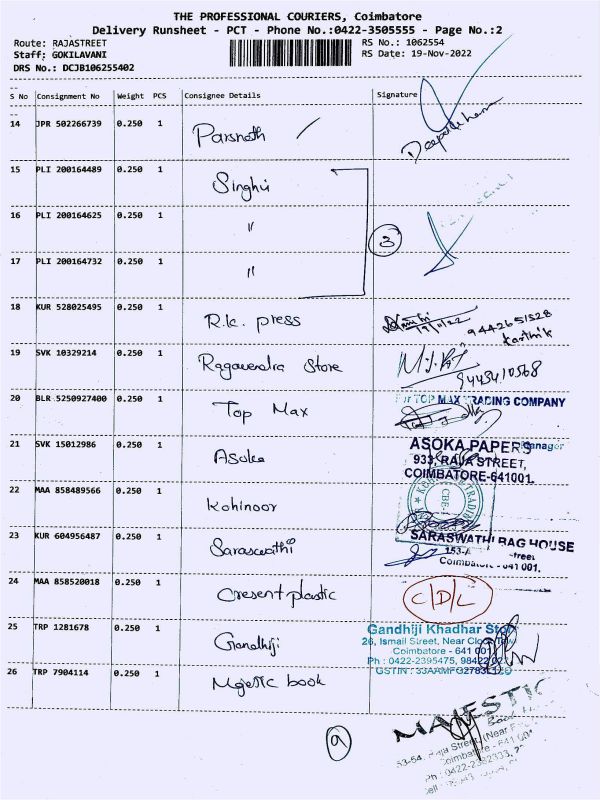 THE PROFESSIONAL COURIERS, Coimbatore
Delivery Runsheet - PCT - Phone No.:0422-3505555 - Page No.:2
Route: RAJASTREET
RS No.: 1062554
Staff: GOKILAVANI
RS Date: 19-Nov-2022
DRS No.: DCJB106255402
S No Consignment No Weight PCS Consignee Details Signature
14 JPR 502266739 0.250 1 Parsnath
15 PLI 200164489 0.250 1 Singhvi
16 PLI 200164625 0.250 1 "
3
17 PLI 200164732 0.250 1 "
18 KUR 528025495 0.250 1 R.k. press
19/11/22 9442651528
Karthik
19 SVK 10329214 0.250 1 Ragavendra Store
9445410568
20 BLR 5250927400 0.250 1 Top Max
For TOP MAX TRADING COMPANY
Manager
21 SVK 15012986 0.250 1 Asoka
ASOKA PAPERS
933, RAJA STREET,
COIMBATORE-641001.
22 MAA 858489566 0.250 1 Kohinoor
CBE-1
23 KUR 604956487 0.250 1 Saraswathi
SARASWATHI BAG HOUSE
Coimbatore - 641 001.
24 MAA 858520018 0.250 1 Cresent plastic
C/D/L
25 TRP 1281678 0.250 1 Gandhiji
Gandhiji Khadhar Store
26, Ismail Street, Near Clock Tower
Coimbatore - 641 001
Ph : 0422-2395475, 98422
GSTIN : 33AAMFG2783L
26 TRP 7904114 0.250 1 Majestic book
MAJESTIC
Book
53-54, Raja Street, (Near
Coimbatore - 641 001
Ph : 0422-2382333,
Cell
9